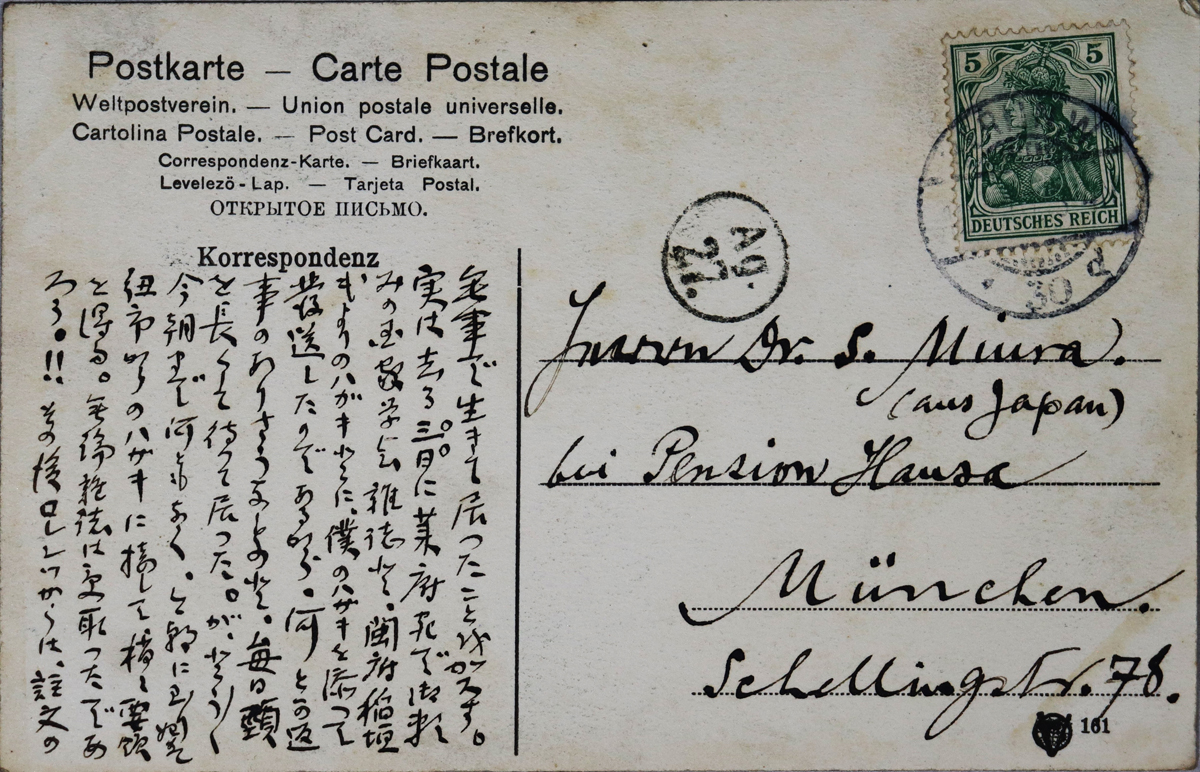 Postkarte — Carte Postale
Weltpostverein. — Union postale universelle.
Cartolina Postale. — Post Card. — Brefkort.
Correspondenz-Karte. — Briefkaart.
Levelező-Lap. — Tarjeta Postal.
ОТКРЫТОЕ ПИСЬМО.
Korrespondenz
無事で生きて居つたこと
実は去る三日に莱府宛で御頼
みの数学会雑誌と、閩府稲垣
よりのハガキとに、僕のハガキを添つて
送したのであるから、何とか返
事のありさうなものと、毎日頸
を長くして待つて居つた。が、
今朝まで何ともなく、
紐市からのハガキに接して稍々要領
を得る。無論雑誌は受取つたであ
ろう。!! その後ロレンツからは、註文の
5 5
DEUTSCHES REICH
30
Ag.
27.
Herrn Dr. S. Miura.
(aus Japan)
bei Pension Hansa
München.
Schellingstr. 78.
161